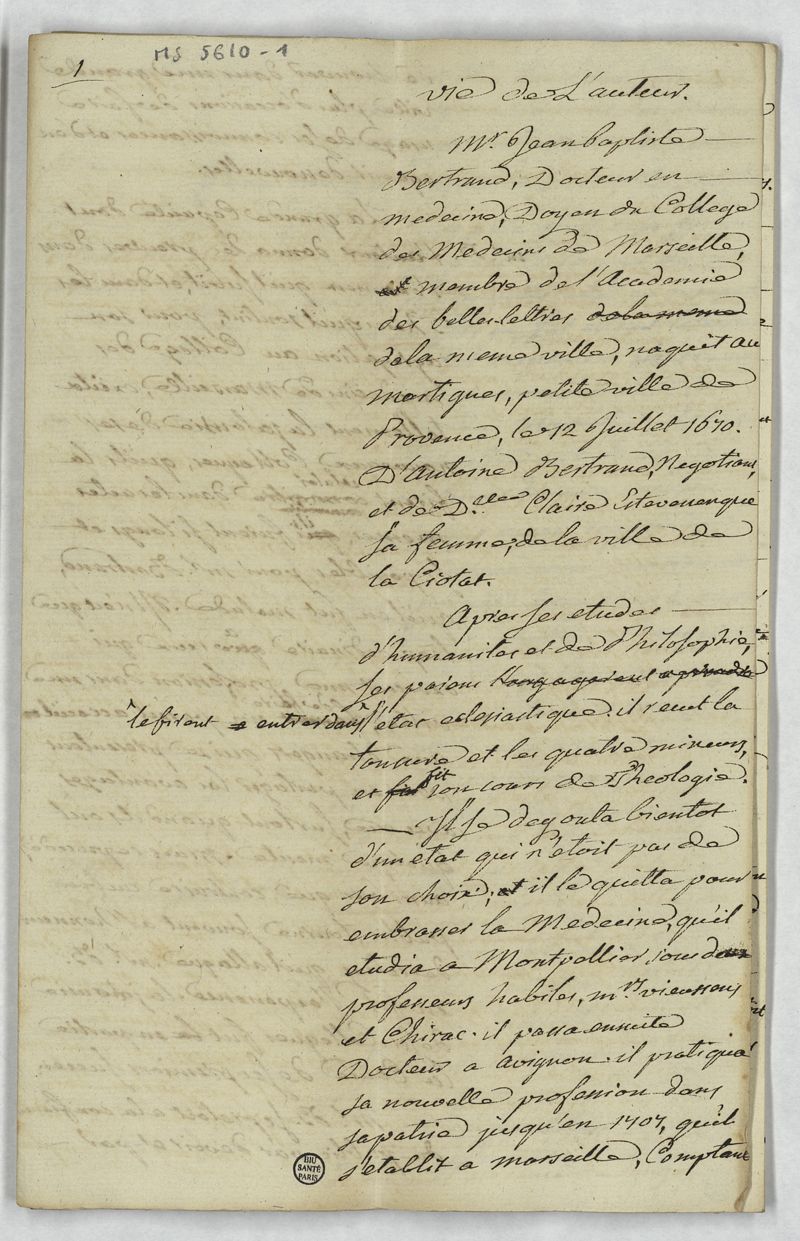 MS 5610-1
1
vie de L'auteur.
Mr. Jean baptiste
Bertrand, Docteur en
medecine, Doyen du College
des Medecins de Marseille,
et membre de l'Academie
des belles lettres de la meme
de la meme ville, naquit au
martigues, petite ville de
Provence, le 12 Juillet 1670.
D'antoine Bertrand, Negotiant,
et de D.elle Claire Estevenenque
sa femme, de la ville de
la Ciotat.
Apres ses etudes
d'humanites et de Philosophie,
ses parens l'engagerent a prendre
le firent entrer dans l'etat eclesiastique. il reçut la
tonsure et les quatre mineurs,
et fit son cours de Theologie.
Il se degouta bientot
d'un etat qui n'etoit pas de
son choix, et il le quitta pour
embrasser la Medecine, qu'il
etudia a Montpellier sous deux
professeurs habiles, mrs vieussens
et Chirac. il passa ensuite
Docteur a avignon. il pratiqua
sa nouvelle profession dans
sa patrie jusqu'en 1707, qu'il
s'etablit a marseille, Comptant
BIU
SANTÉ
PARIS